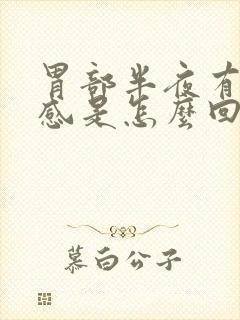 胃部半夜有
感是怎麼回
慕白公子